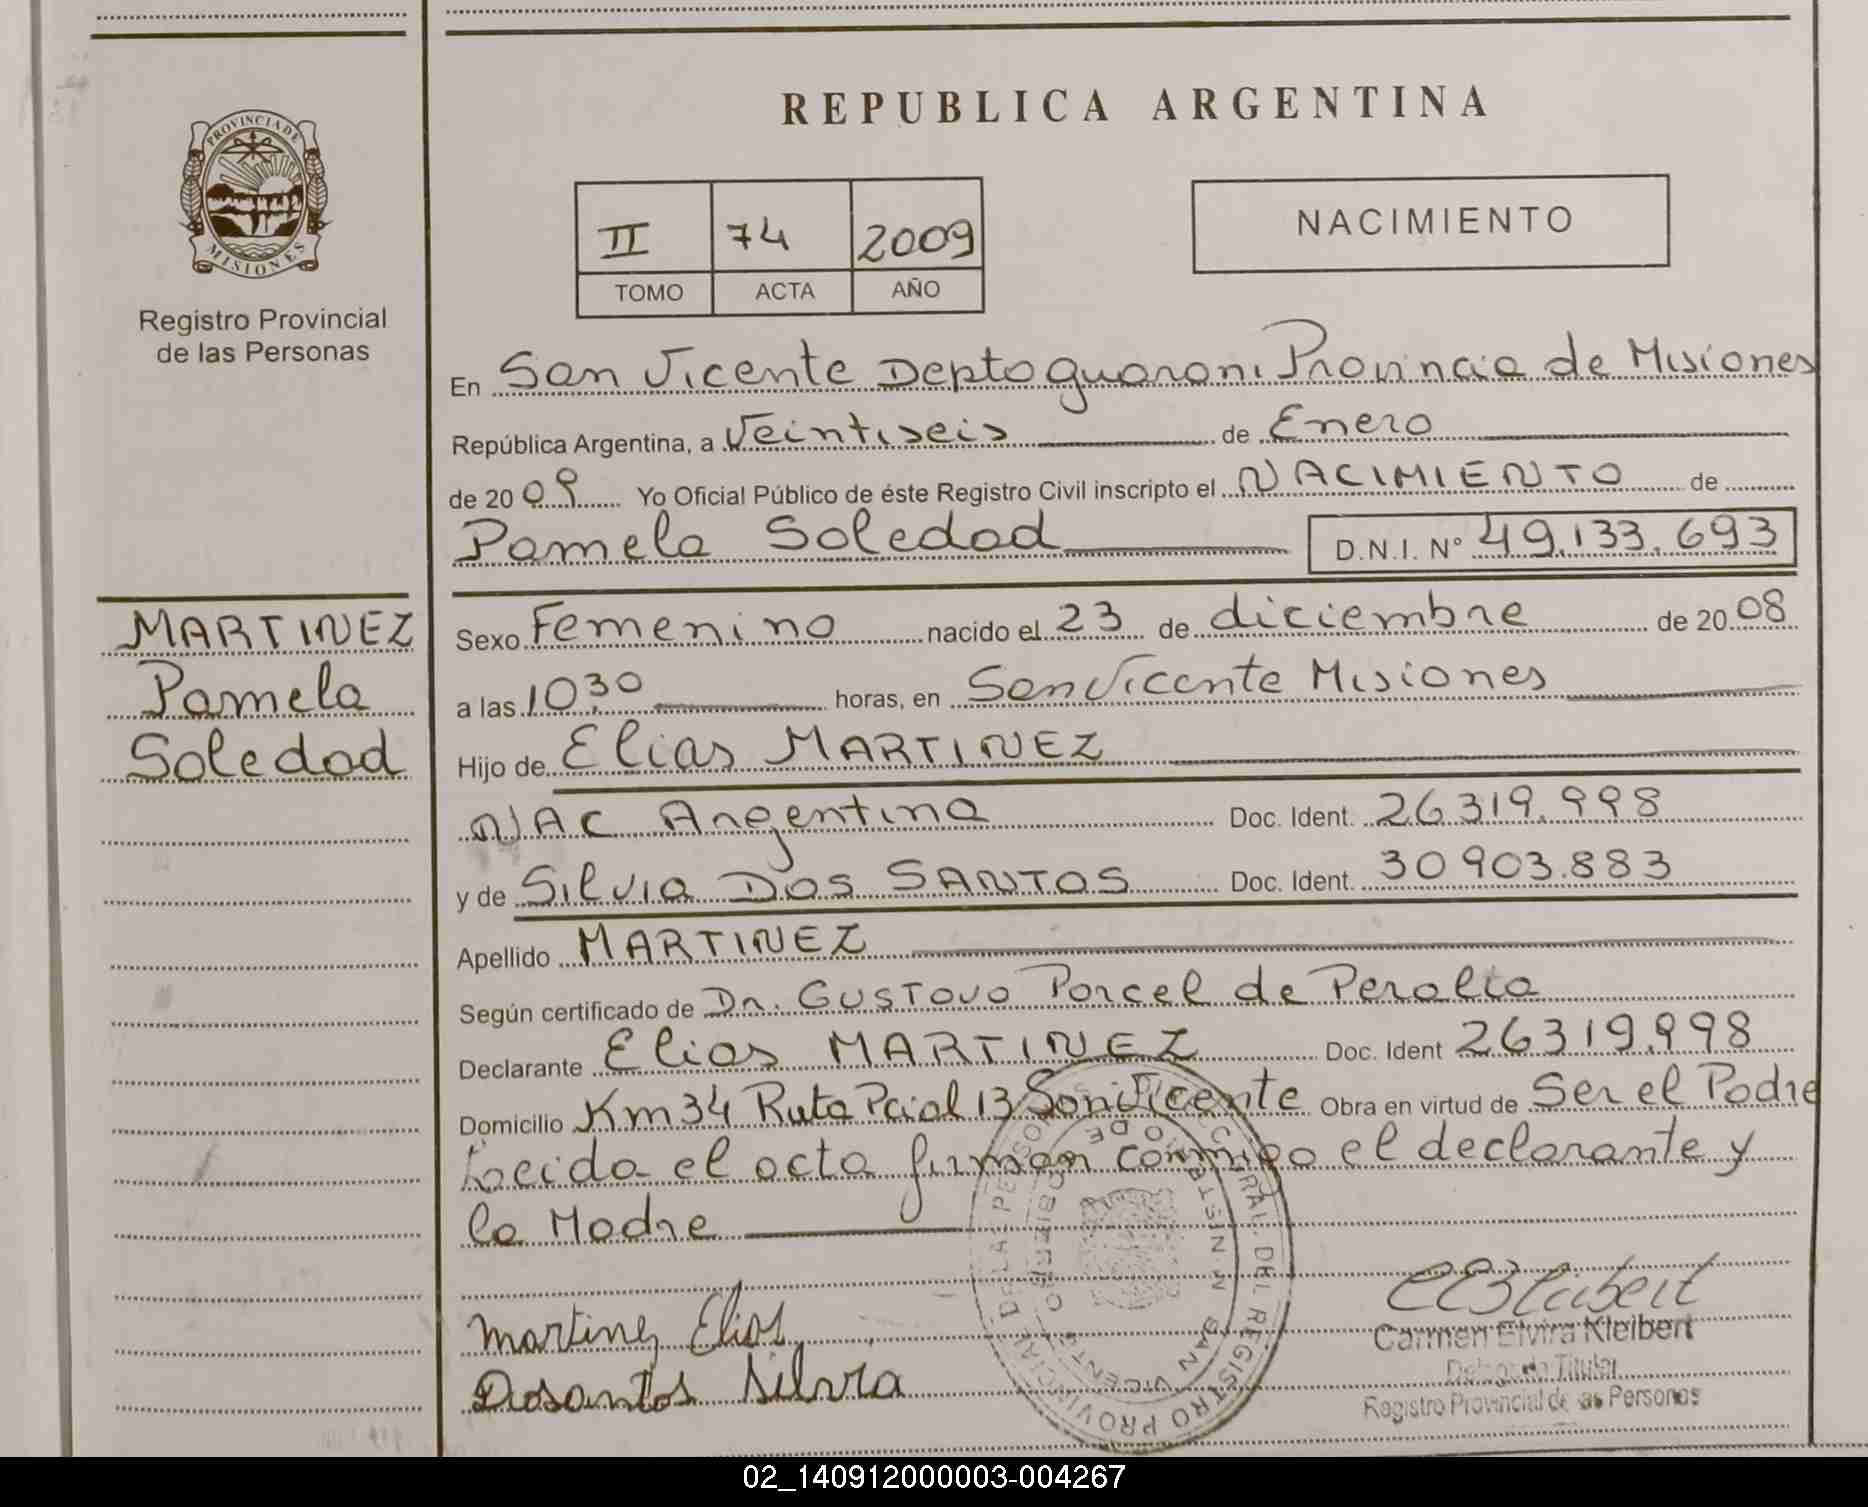 PROVINCIA DE
MISIONES
Registro Provincial
de las Personas
MARTINEZ
Pamela
Soledad
REPUBLICA ARGENTINA
II 74 2009
TOMO ACTA AÑO
NACIMIENTO
En San Vicente Depto guarani Provincia de Misiones
República Argentina, a Veintiseis de Enero
de 20 09 Yo Oficial Público de éste Registro Civil inscripto el NACIMIENTO de
Pamela Soledad D.N.I. Nº 49.133.693
Sexo Femenino nacido el 23 de diciembre de 20 08
a las 10,30 horas, en San Vicente Misiones
Hijo de Elias MARTINEZ
NAC Argentina Doc. Ident. 26319.998
y de Silvia DOS SANTOS Doc. Ident. 30903.883
Apellido MARTINEZ
Según certificado de Dr. Gustavo Porcel de Peralta
Declarante Elias MARTINEZ Doc. Ident 26319.998
Domicilio Km 34 Ruta Pcial 13 San Vicente Obra en virtud de Ser el Padre
Leida el acta firman conmigo el declarante y
la Madre
Martinez Elias
Dosantos Silvia
Carmen Elvira Kleibert
Delegada Titular
Registro Provincial de las Personas
02_140912000003-004267